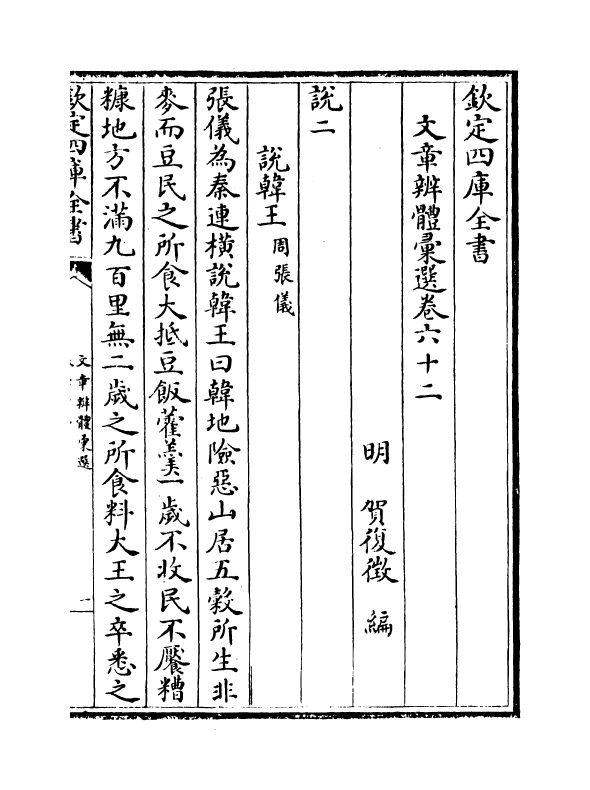 欽定四庫全書
文章辨體彚選卷六十二
明 賀復徵 編
説二
説韓王周張儀
張儀為秦連横説韓王曰韓地險惡山居五穀所生非
麥而豆民之所食大抵豆飯藿羮一歲不收民不饜糟
糠地方不滿九百里無二歲之所食料大王之卒悉之
欽定四庫全書
文章辨體彚選
一